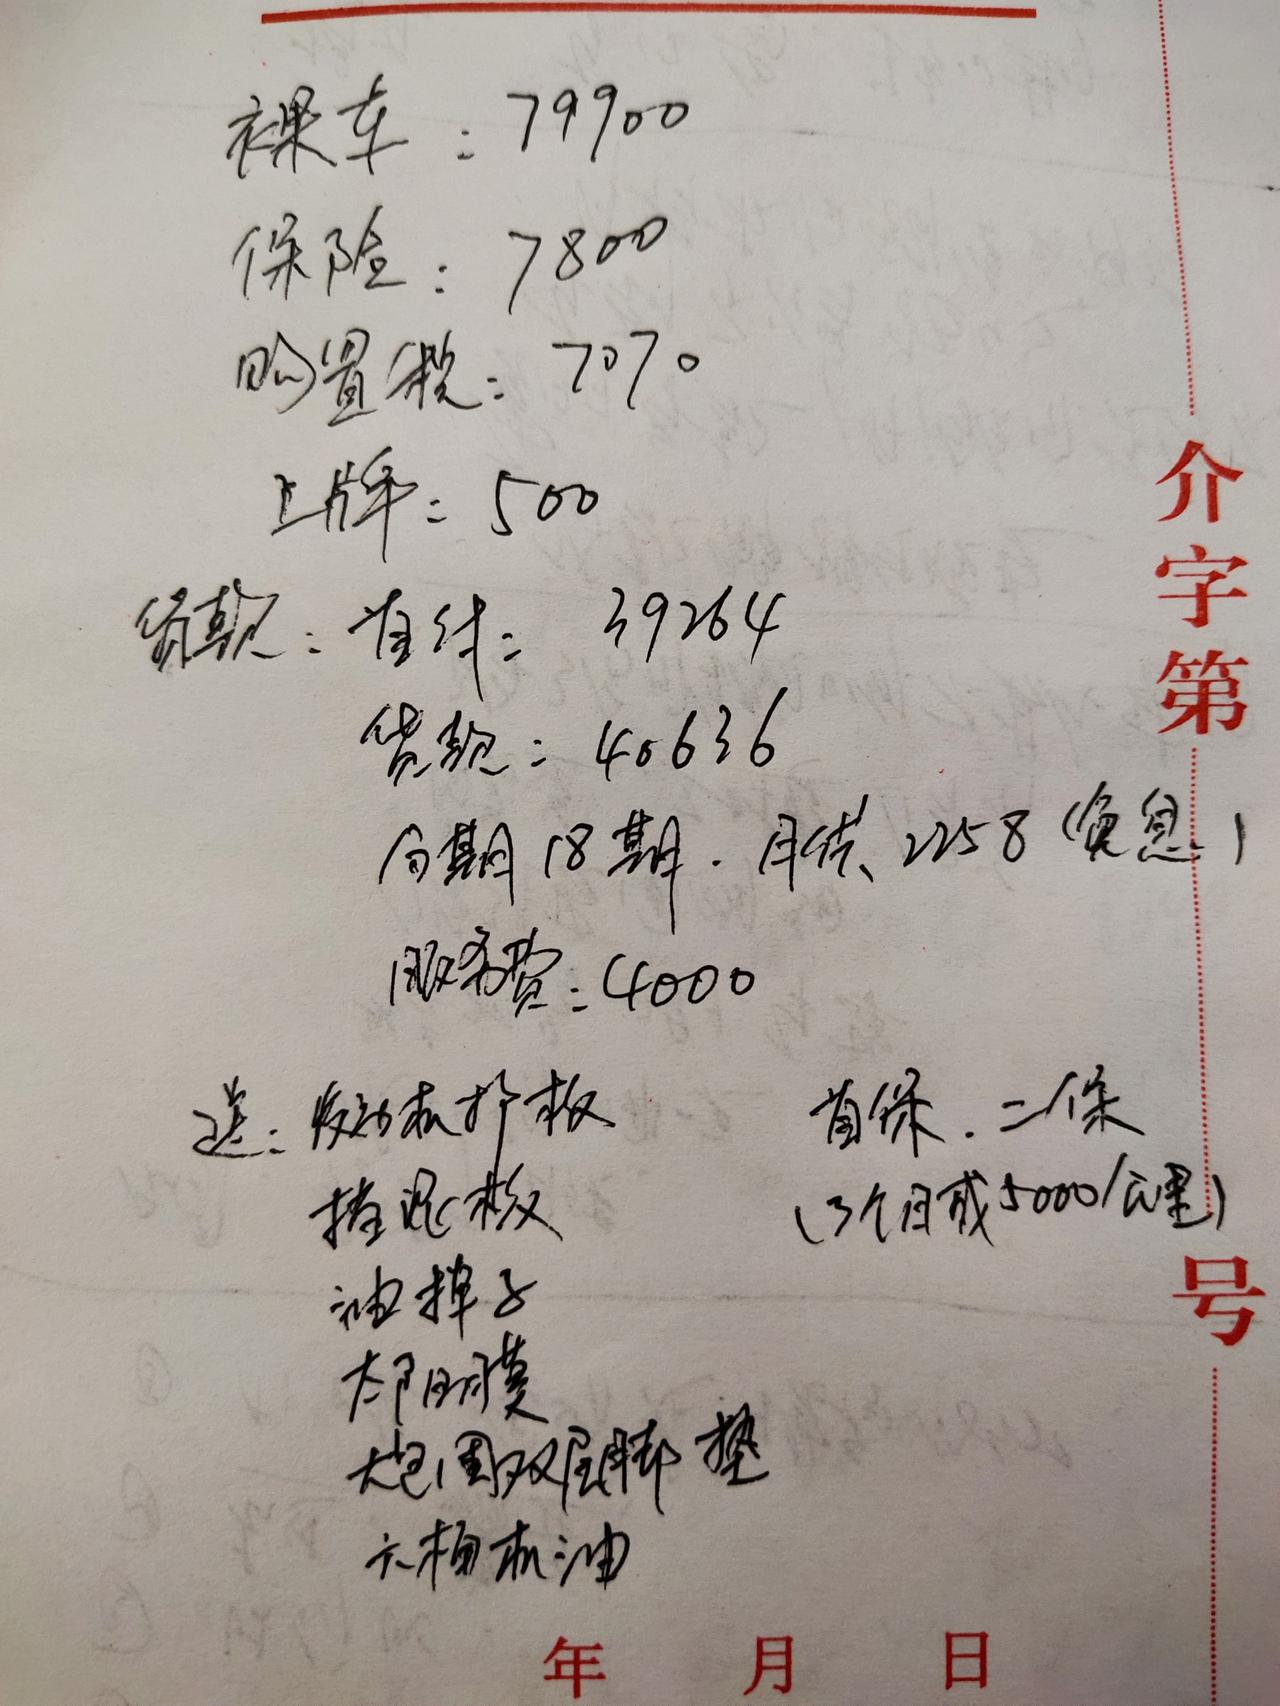 裸车：79900
保险：7800
购置税：7070
上牌：500
贷款：首付：39264
贷款：40636
分期18期．月供、2258（免息）
服务费：4000
送：发动机护板
挡泥板
油掸子
太阳膜
大包围双层脚垫
六桶机油
首保．二保
（3个月或5000/公里）
介字第
号
年 月 日